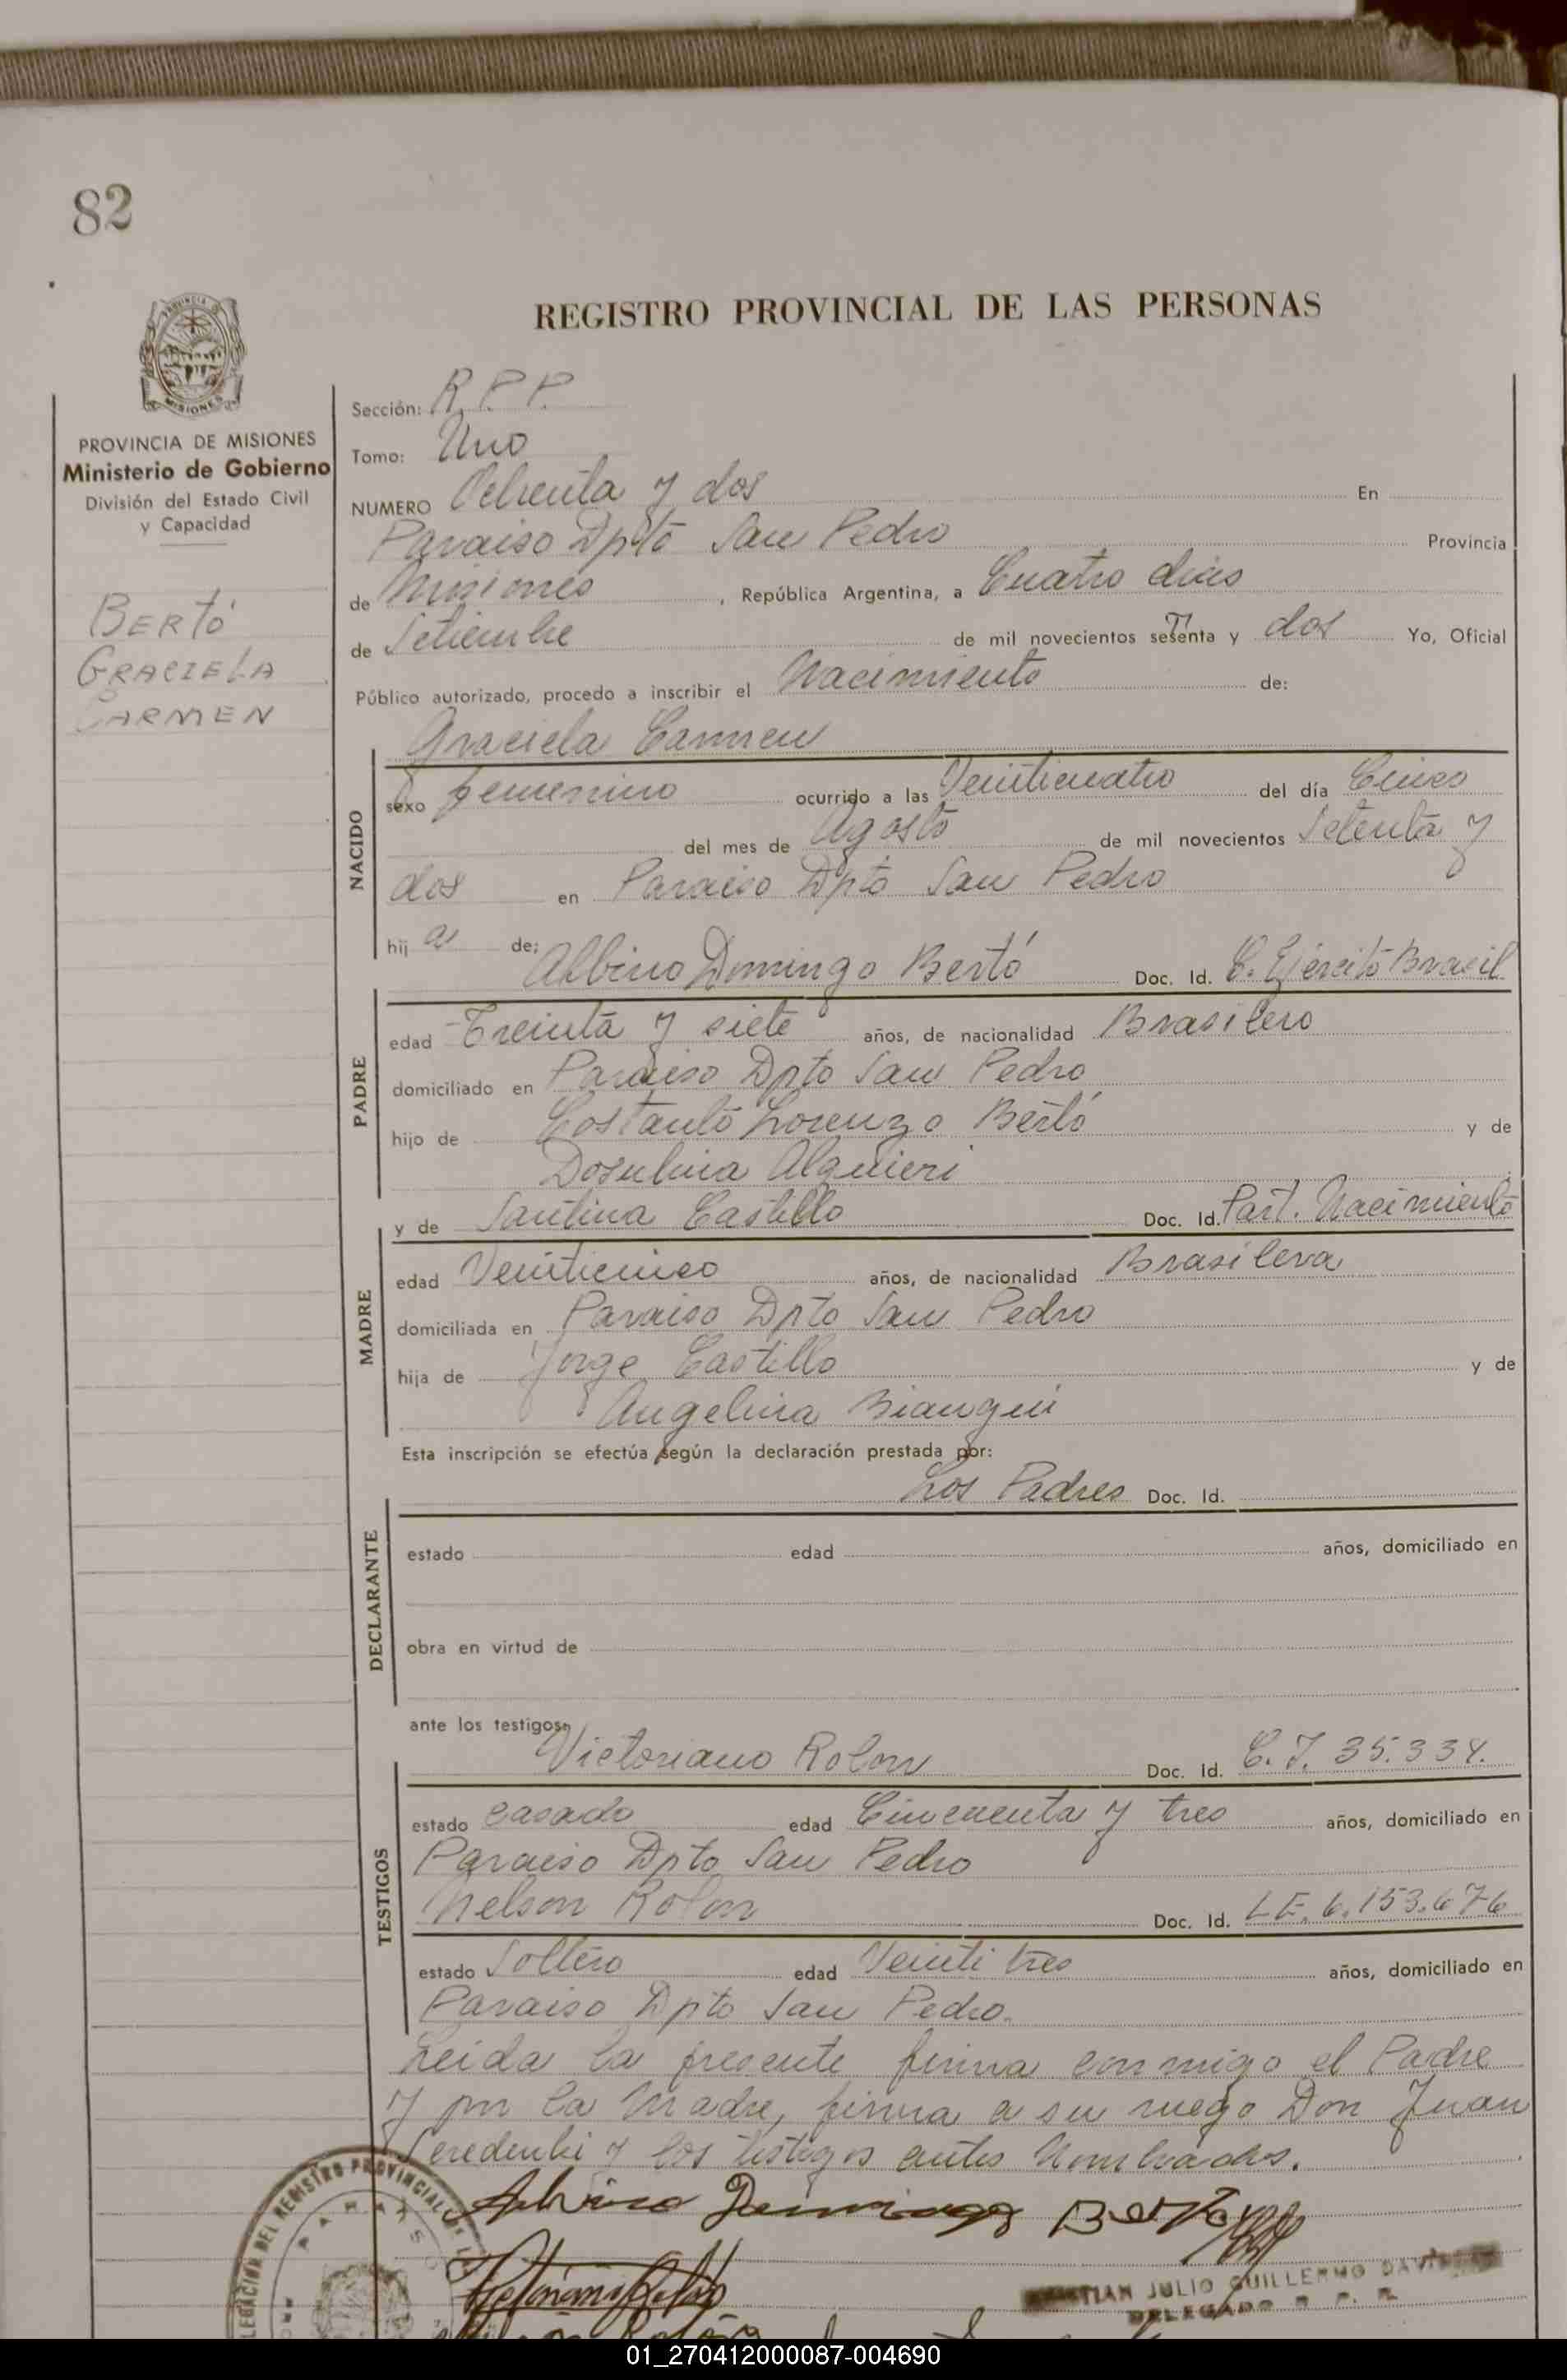 82
REGISTRO PROVINCIAL DE LAS PERSONAS
PROVINCIA DE MISIONES
Ministerio de Gobierno
División del Estado Civil
y Capacidad
BERTÓ
GRACIELA
CARMEN
Sección: R.P.P.
Tomo: Uno
NUMERO Ochenta y dos En
Paraiso Dpto San Pedro Provincia
de Misiones, República Argentina, a Cuatro dias
de Setiembre de mil novecientos setenta y dos Yo, Oficial
Público autorizado, procedo a inscribir el Nacimiento de:
Graciela Carmen
NACIDO
sexo femenino ocurrido a las Veinticuatro del día Cinco
del mes de Agosto de mil novecientos Setenta y
dos en Paraiso Dpto San Pedro
hij a de: Albino Domingo Bertó Doc. Id. C. Ejército Brasil
PADRE
edad Treinta y siete años, de nacionalidad Brasilero
domiciliado en Paraiso Dpto San Pedro
hijo de Costanto Lorenzo Bertó y de
Dosulina Alguieri
y de Santina Castillo Doc. Id. Part. Nacimiento
MADRE
edad Veinticinco años, de nacionalidad Brasilera
domiciliada en Paraiso Dpto San Pedro
hija de Jorge Castillo y de
Angelina Biangui
Esta inscripción se efectúa según la declaración prestada por:
Los Padres Doc. Id.
DECLARANTE
estado edad años, domiciliado en
obra en virtud de
ante los testigos:
Victoriano Rolon Doc. Id. C.I. 35.334.
TESTIGOS
estado casado edad Cincuenta y tres años, domiciliado en
Paraiso Dpto San Pedro
Nelson Rolon Doc. Id. L.E. 6.153.676
estado Soltero edad Veinti tres años, domiciliado en
Paraiso Dpto San Pedro.
Leida la presente firma conmigo el Padre
y por la Madre, firma a su ruego Don Juan
y los testigos antes Nombrados.
Albino Domingo Berto
DELEGACIÓN DEL REGISTRO PROVINCIAL
JULIO GUILLERMO
DELEGADO R. P. P.
01_270412000087-004690